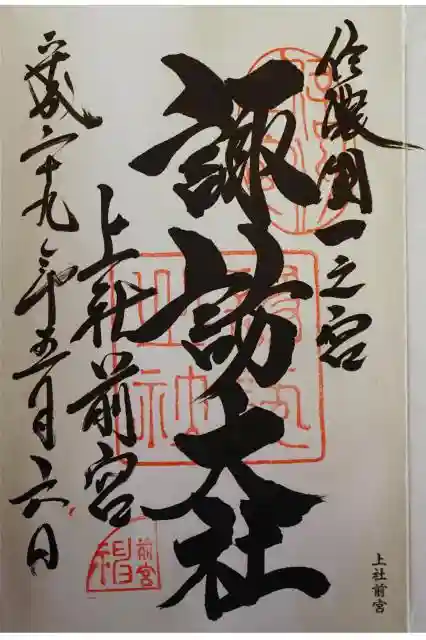 信濃國一之宮
諏訪大社
上社前宮
平成二十九年五月六日
前宮
上社前宮